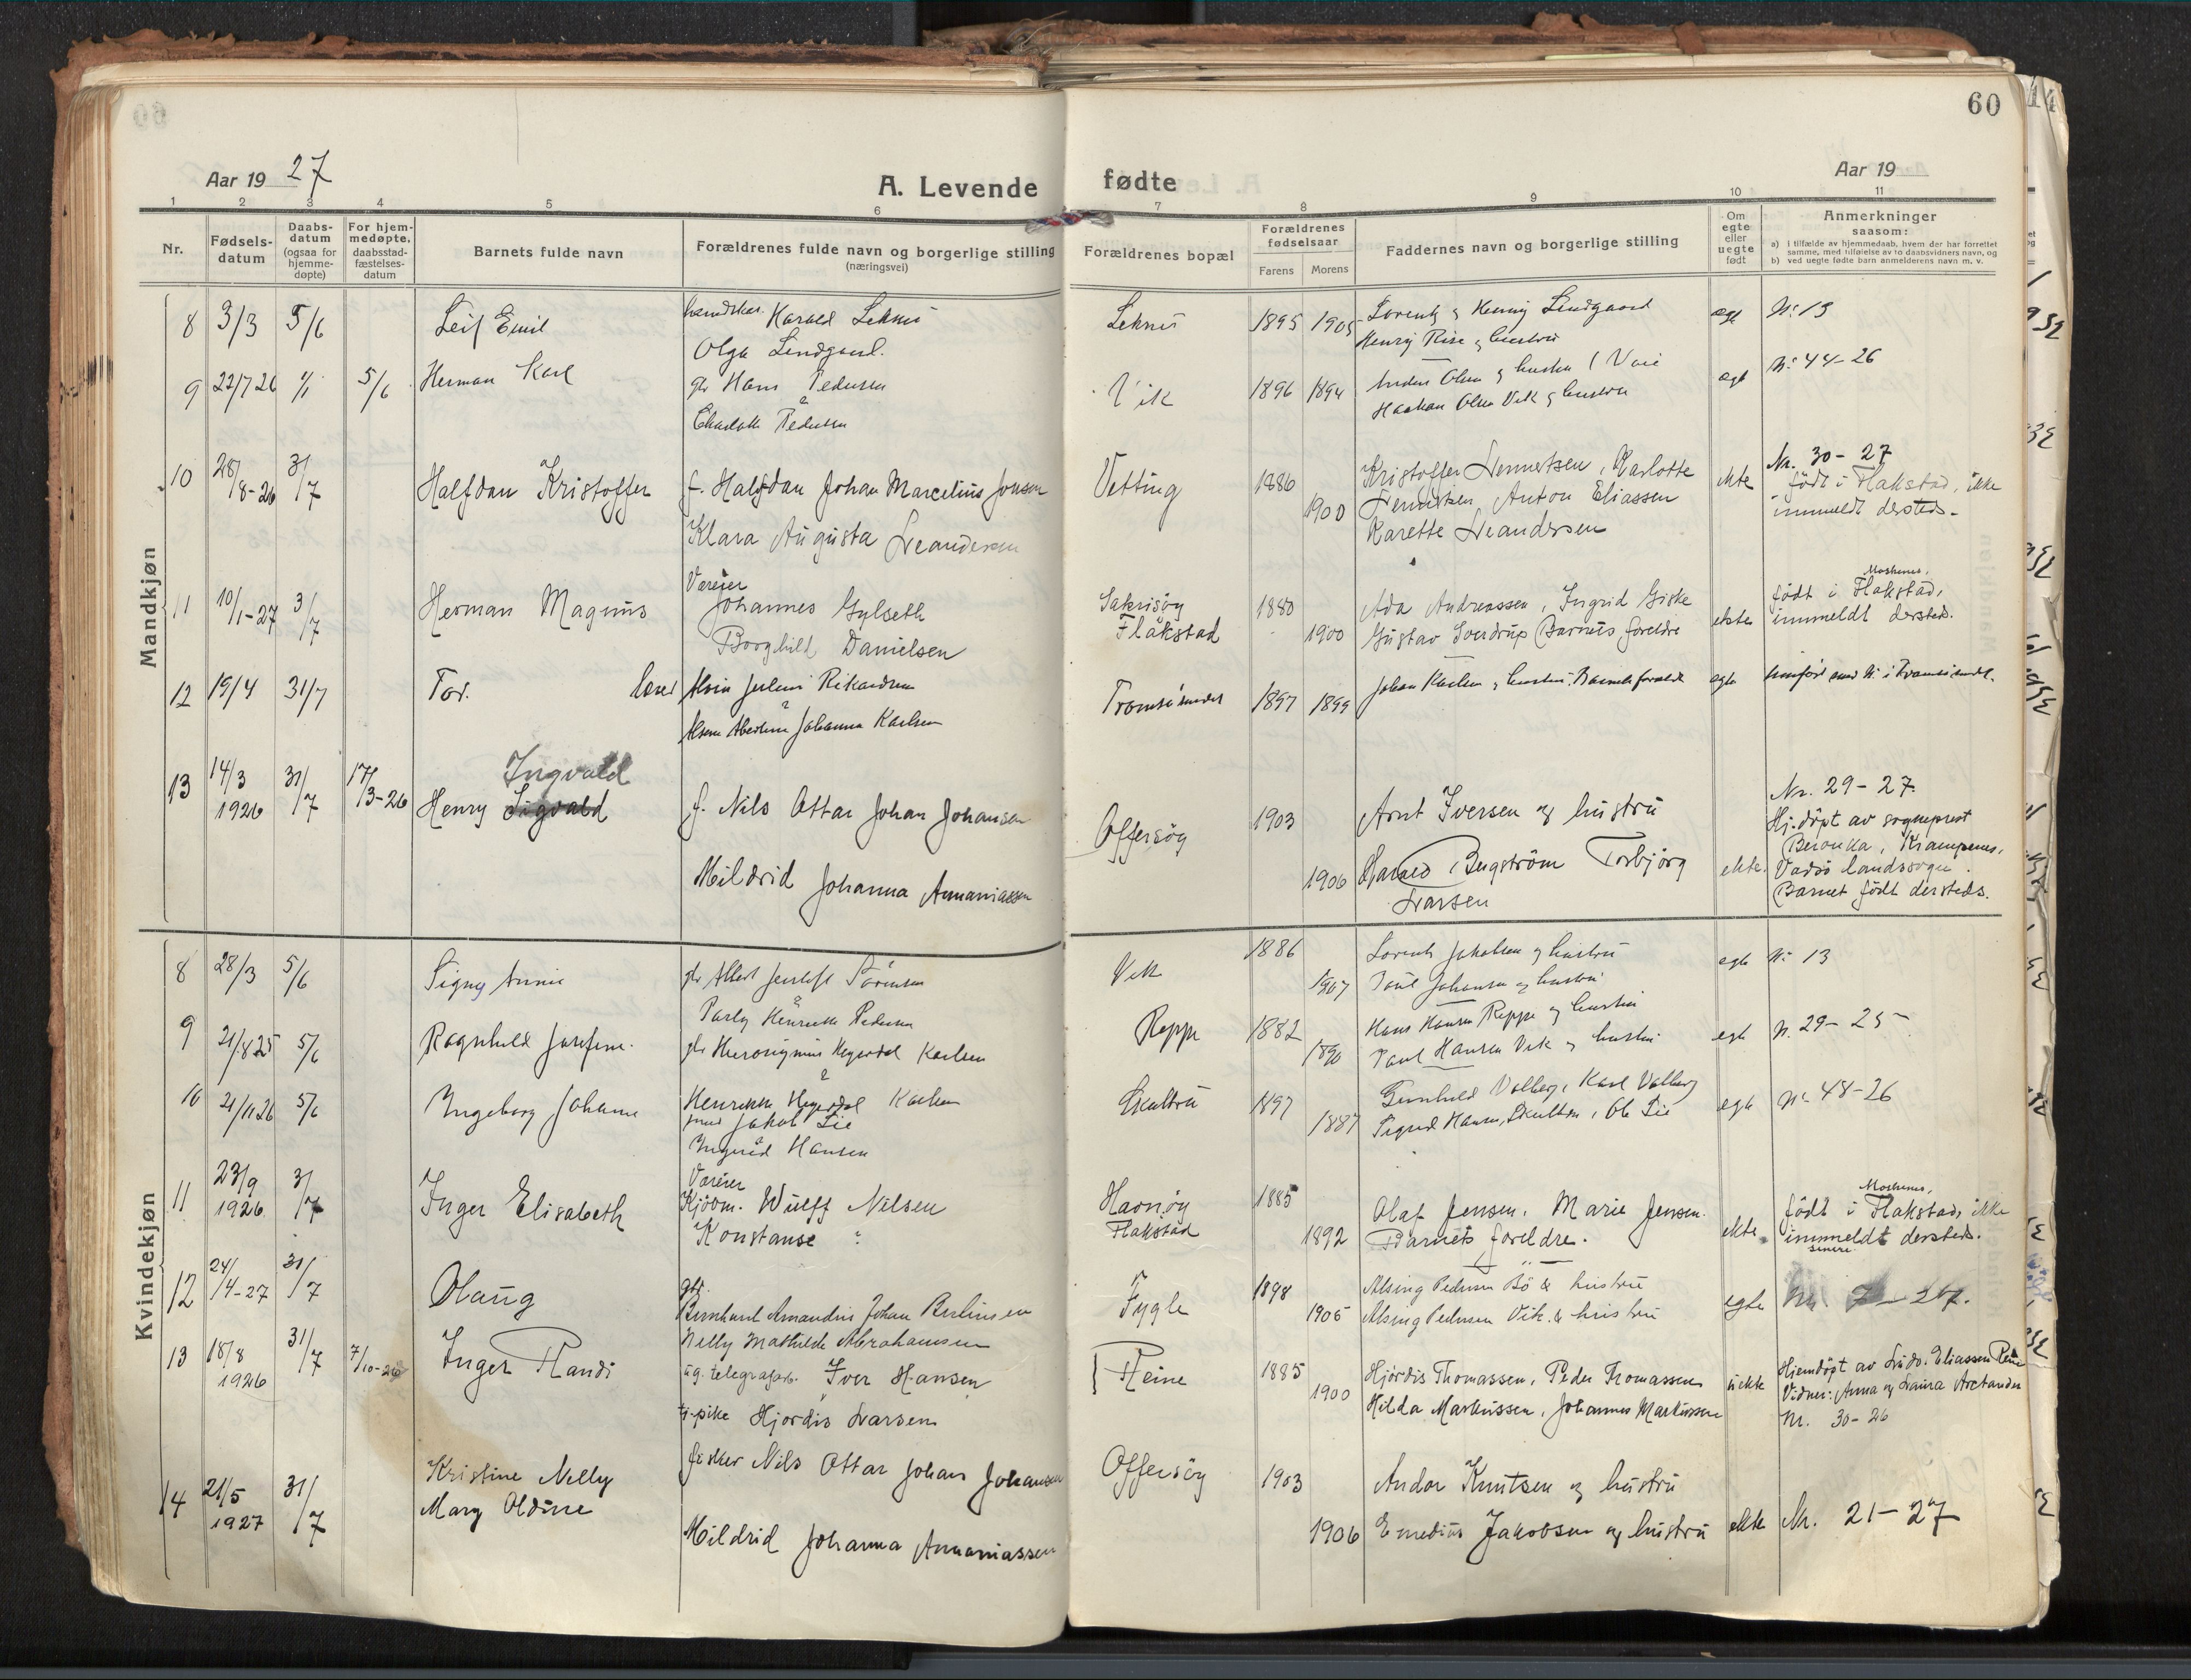 60
Aar 19 27
A. Levende
fødte
Aar 19
1 2 3 4 5 6 7 8 9 10 11
Nr.
Fødsels-
datum
Daabs-
datum
(ogsaa for
hjemme-
døpte)
For hjem-
medøpte,
daabsstad-
fæstelses-
datum
Barnets fulde navn
Forældrenes fulde navn og borgerlige stilling
(næringsvei)
Forældrenes bopæl
Forældrenes
fødselsaar
Farens Morens
Faddernes navn og borgerlige stilling
Om
egte
eller
uegte
født
Anmerkninger
saasom:
a) i tilfælde av hjemmedaab, hvem der har forrettet
samme, med tilføielse av to daabsvidners navn, og
b) ved uegte fødte barn anmelderens navn m. v.
Mandkjøn
8 3/3 5/6 Leif Emil Harald Leknes
Olga Lindgaard.
Leknes 1895 1905 Lorentz g Henny Lindgaard
Henry Rise g hustru
egt Nr 13
9 22/7 26 1/1 5/6 Herman Karl gbr Hans Pedersen
&
Charlotte Pedersen
Vik 1896 1894 Anders Olsen g hustru
Haakon Olsen Vik g hustru
egt Nr 44-26
10 28/8-26 3/7 Halfdan Kristoffer f. Halfdan Johan Marcelius Jonsen
Klara Augusta Leandersen
Vetting 1886 1900 Kristoffer Lennertsen, Karlotte
Lennertsen, Anton Eliassen
Karette Leandersen
ekte Nr. 30-27
født i Flakstad, ikke
innmeldt dersteds.
11 10/1-27 3/7 Herman Magnus Væreier
Johannes Gylseth
Borghild Danielsen
Sakrisøy
Flakstad
1880 1900 Ada Andreassen, Ingrid Giske
Gustav Sverdrup Barnets foreldre
ekte Moskenes,
født i Flakstad,
innmeldt dersteds.
12 19/4 31/7 Tor. lærer Rikardsen
Johanna Karlsen
Tromsösundet 1897 1899 Johan Karlsen g hustru. Barnets forældre
egte
13 14/3
1926 31/7 17/3-26 Ingvald
Henry Sigvald
f. Nils Ottar Johan Johansen
Mildrid Johanna Annaniassen
Offersøy 1903 1906 Arnt Iversen og hustru
Harald Bergström Torbjørg
Larsen
ekte. Nr. 29-27.
Hj.døpt av sogneprest
Beronka, Krampenes,
Vadsø landssogn.
Barnet født dersteds.
Kvindekjøn
8 28/3 5/6 Signy Annie gbr Albert Sørensen
&
Parly Henrikke Pedersen
Vik 1886 1907 Lorentz Jakobsen g hustru
Poul Johansen og hustru
egte Nr 13
9 21/8 25 5/6 Ragnhild Josefine. gbr Hieronymus Hegerdal Karlsen
&
Henrikke Hegerdal Karlsen
Reppe 1882 1890 Hans Hansen Reppe og hustru
Paul Hansen Vik g hustru
egte Nr. 29-25
10 21/11 26 5/6 Ingeborg Johanne Jakob Lie
Ingrid Hansen
Skulbru 1897 1887 Gunhild Valberg, Karl Valberg
Sigurd Hansen, Skulbru, Ole Lie
egte Nr. 48-26
11 23/9
1926 31/7 Inger Elisabeth Væreier
Kjøbm. Wulff Nilsen
Konstanse "
Havnøy
Flakstad
1885 1892 Olaf Jensen, Marie Jensen.
Barnets foreldre.
ekte. Moskenes,
født i Flakstad, ikke
innmeldt dersteds.
senere
12 24/4-27 31/7 Olaug gbr.
Bernhard Amandus Johan Berlinsen
Nelly Mathilde Abrahamsen
Fygle 1898 1905 Alsing Pedersen Bö & hustru
Alsing Pedersen Vik & hustru
egte Nr.
13 18/8
1926 31/7 7/10-26 Inger Randi ug. telegrafarb. Iver Hansen
tj.pike Hjordis Larsen
Reine 1885 1900 Hjördis Thomassen, Peder Thomassen
Hilda Markussen, Johannes Markussen
uekte Hjemdøpt av Ludv. Eliassen Reine
Vidner: Anna og Laura Arctander
Nr. 30-26
14 21/5
1927 31/7 Kristine Nelly
Mary Oldine
fisker Nils Ottar Johan Johansen
Mildrid Johanna Annaniassen
Offersøy 1903 1906 Andor Knutsen og hustru
Emedius Jakobsen og hustru
ekte Nr. 21-27